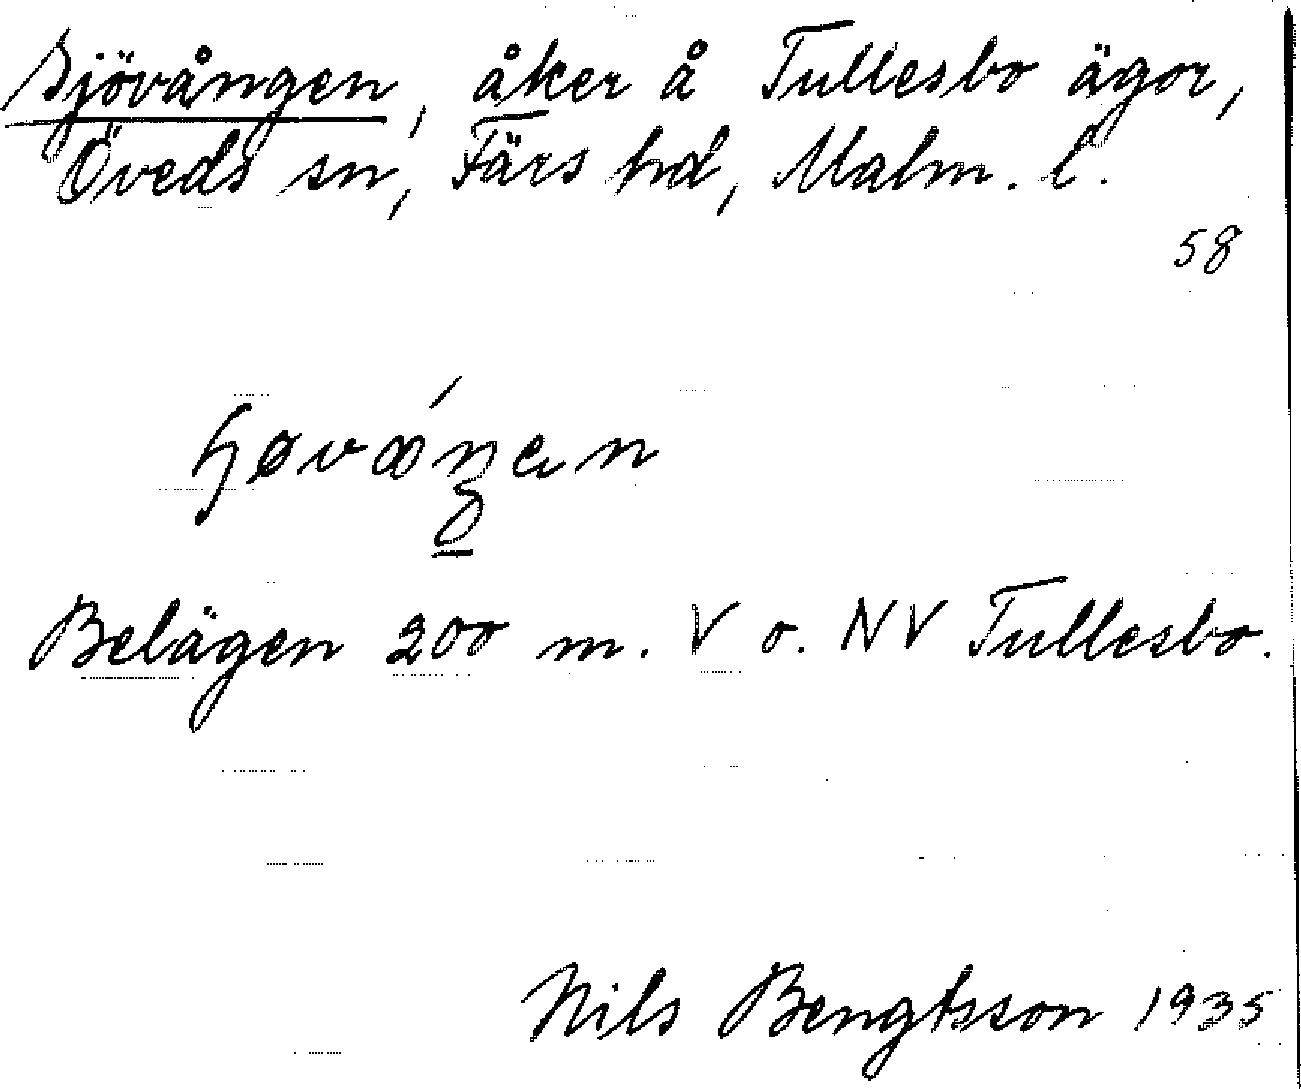 Sjövången, åker å Tullesbo ägor,
Öveds sn, Färs hd, Malm. l.
58
Belägen 200 m. V o. NV Tullesbo.
Nils Bengtsson 1935